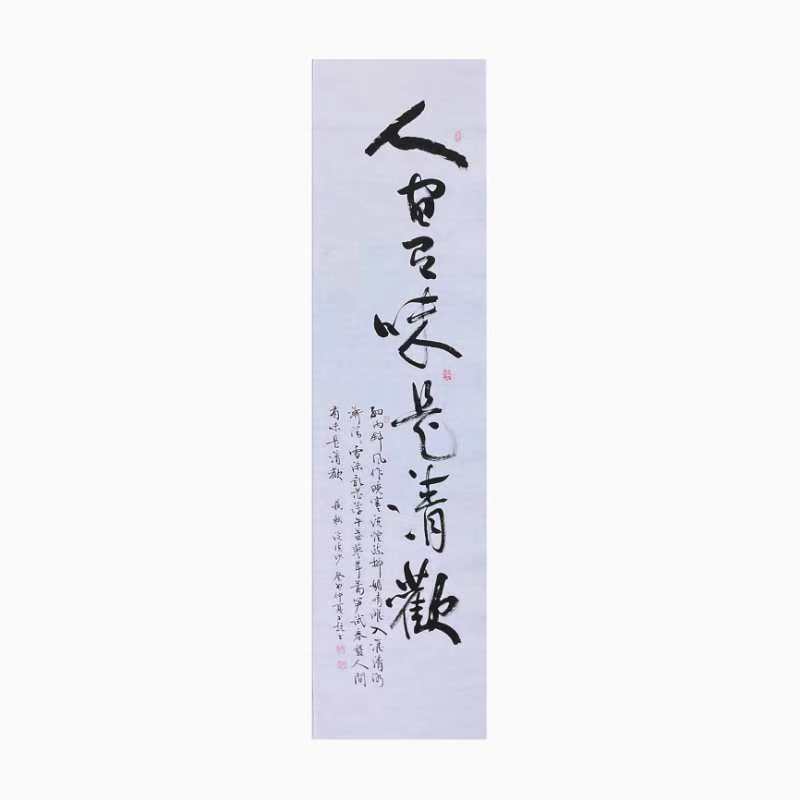 人間有味是清歡
細雨斜風作曉寒淡煙疏柳媚晴灘入淮清洛
漸漫漫雪沫乳花浮午盞蓼茸蒿筍試春盤人間
有味是清歡 蘇軾浣溪沙癸
仲夏